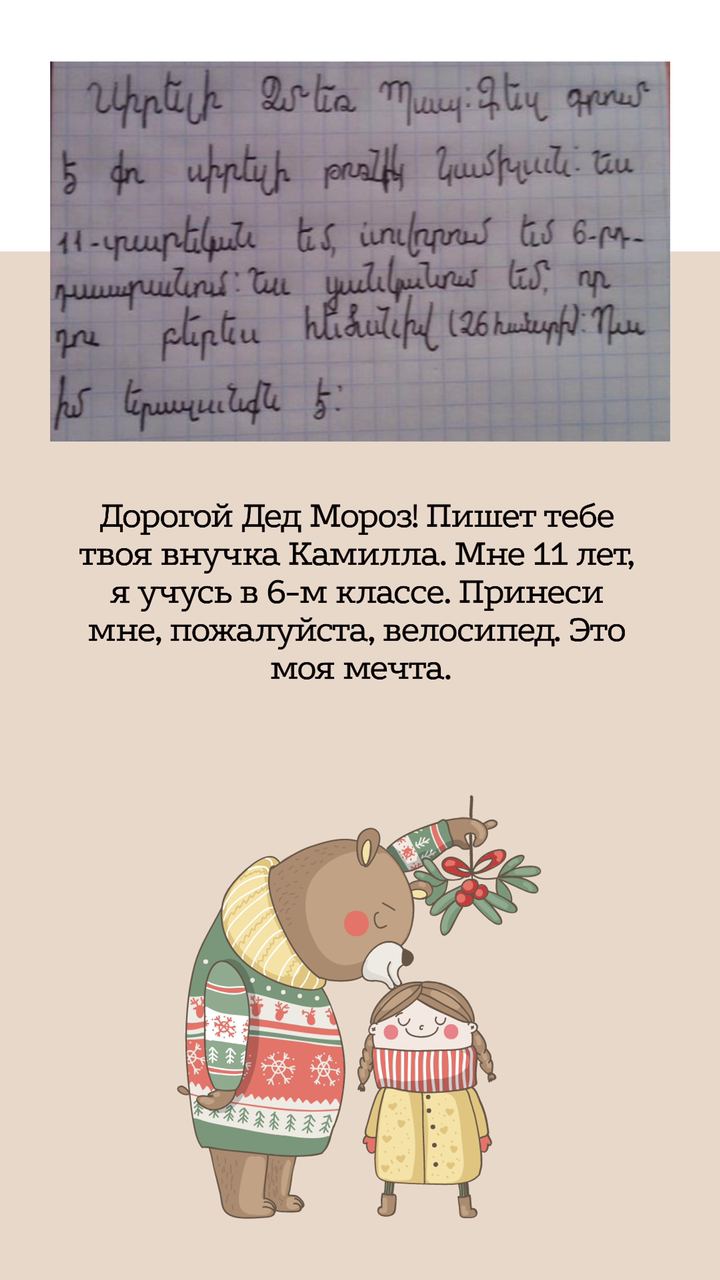 Սիրելի Ձմեռ Պապ: Ձեզ գրում
է ձր սիրելի թոռնիկ Կամիլան: Ես
11-տարեկան եմ, սովորում եմ 6-րդ-
դասարանում: Ես ցանկանում եմ, որ
դու բերես հեծանիվ (26 համարի): Դա
իմ երազանքն է:
Дорогой Дед Мороз! Пишет тебе
твоя внучка Камилла. Мне 11 лет,
я учусь в 6-м классе. Принеси
мне, пожалуйста, велосипед. Это
моя мечта.